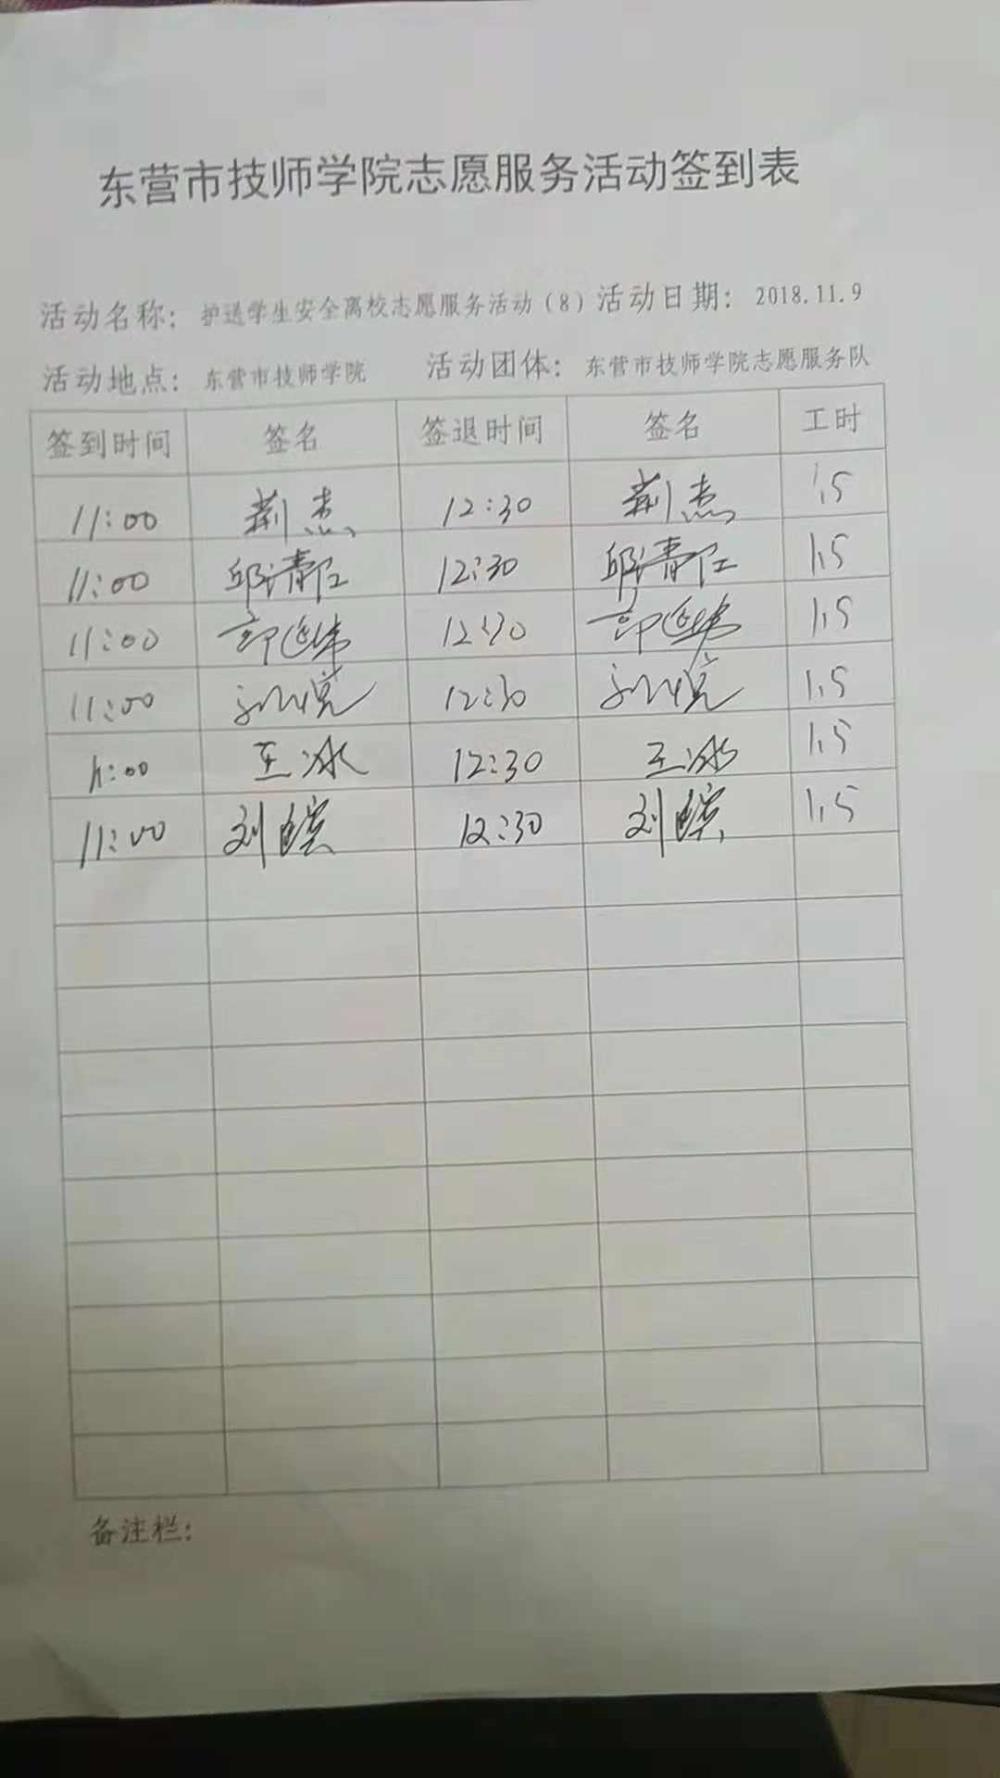 东营市技师学院志愿服务活动签到表
活动名称：护送学生安全离校志愿服务活动（8）活动日期：2018.11.9
活动地点：东营市技师学院 活动团体：东营市技师学院志愿服务队
签到时间 签名 签退时间 签名 工时
11:00 荆杰 12:30 荆杰 1.5
11:00 12:30 1.5
11:00 郭延伟 12:30 郭延伟 1.5
11:00 孙悦 12:30 孙悦 1.5
11:00 王冰 12:30 王冰 1.5
11:00 刘 12:30 刘 1.5
备注栏：